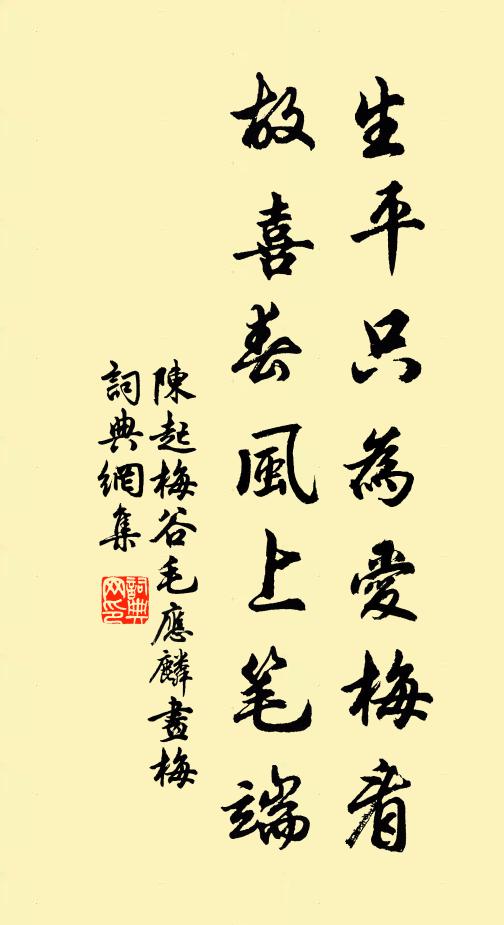 生平只為愛梅看
故喜春風上笔端
陳起梅谷毛應麟畫梅
詞典網集
詞典